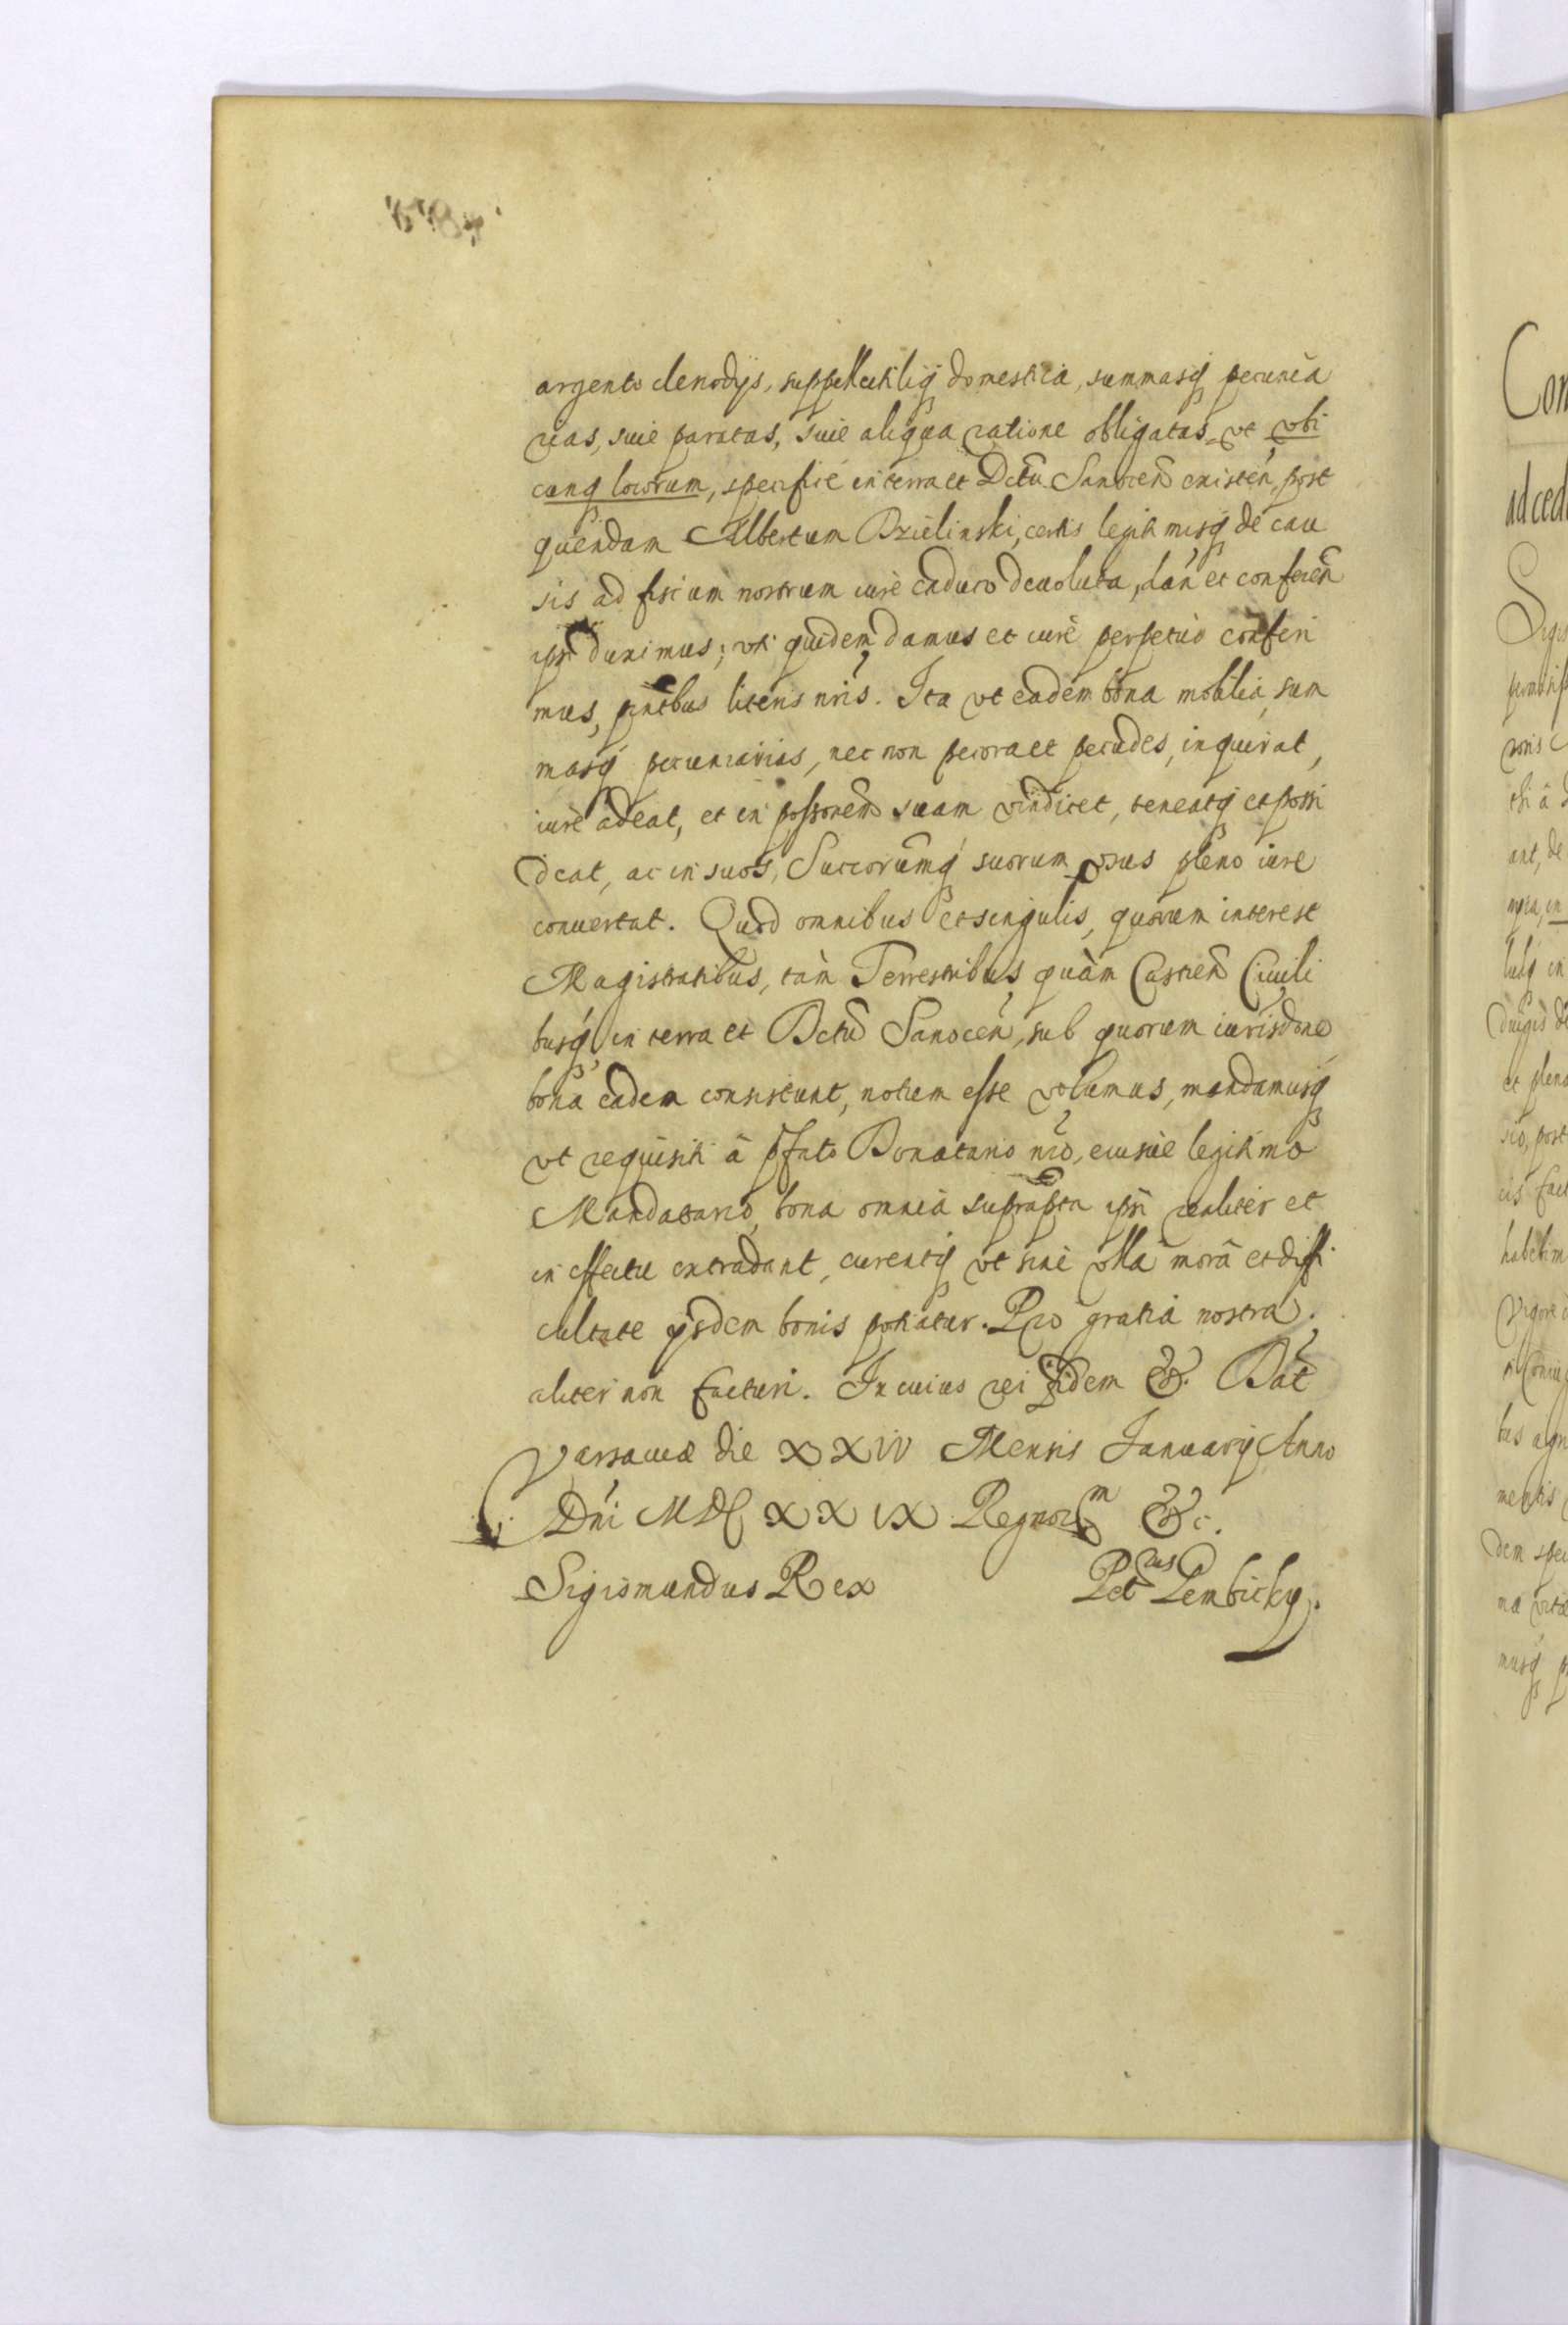 argento clenodijs, suppellectiliq domestica, summasq pecunia
rias, siue paratas, siue aliqua ratione obligatas, vt vbi
cunq locorum, specifice in terra et Dctu Sanocen existen, post
quendam Albertum Dzielinski, certis legitimisq de cau
sis ad fiscum nostrum iure caduco deuoluta, dan et conferen
ipsi duximus; vti quidem damus et iure perpetuo conferi
mus, pntibus literis nris. Ita vt eadem bona mobilia, sum
masq pecuniarias, nec non pecora et pecudes, inquirat,
iure adeat, et in possonem suam vindicet, teneatq et possi
deat, ac in suos, Succorumq suorum vsus pleno iure
conuertat. Quod omnibus et singulis, quorum interest
Magistratibus, tàm Terrestribus, quàm Castren Ciuili
busq in terra et Dctu Sanocen, sub quorum iurisdone
bona eadem consistunt, notum esse volumus, mandamusq
vt requisiti à pfato Donatario nro, eiusue legitimo
Mandatario, bona omnia suprapta ipsi realiter et
in effectu extradant, curentq vt sine vlla morâ et diffi
cultate ijsdem bonis potiatur. Pro gratia nostra,
aliter non facturi. In cuius rei fidem &. Dat
Varsauiæ die XXIV Mensis January Anno
Dni MDCXXIX Regnor m &c.
Sigismundus Rex Petrus Gembicky.